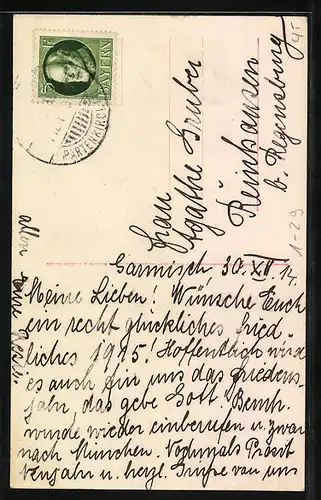 5 BAYERN
PARTENKIRCH
Frau
Agathe Gruber
Reinhausen
b. Regensburg
1-29
Garmisch, 30. XII 14.
Meine Lieben! Wünsche Euch
ein recht glückliches fried
liches 1915! Hoffentlich wird
es auch für uns das Friedens-
jahr, das gebe Gott. Bernh.
wurde wieder einberufen u. zwar
nach München. Nochmals Prosit
Neujahr u. herzl. Grüße von uns
allen